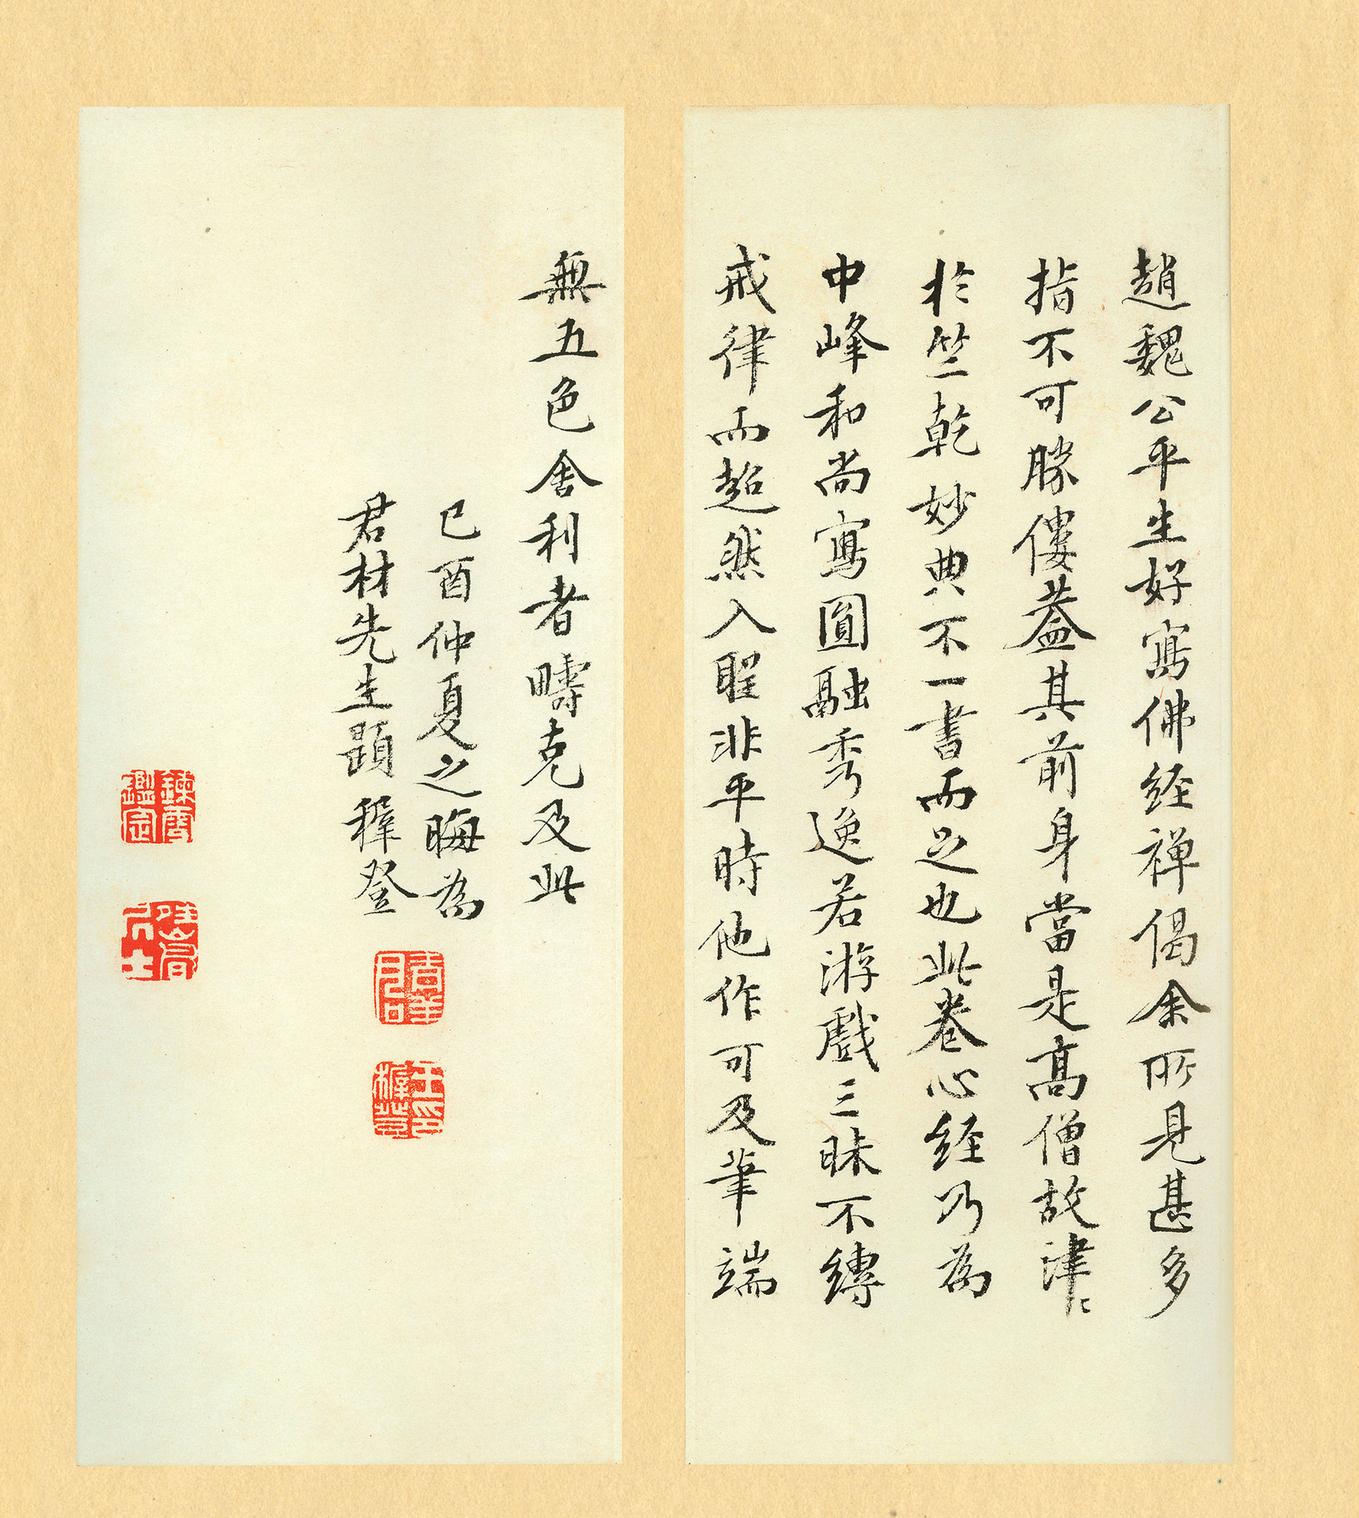 趙魏公平生好寫佛経禅偈余所見甚多
指不可勝僂葢其前身當是高僧故津〻
於竺乾妙典不一書而之也此卷心経乃為
中峰和尚寫圓融秀逸若游戲三昧不縛
戒律而超然入聖非平時他作可及筆端
無五色舍利者疇克及此
己酉仲夏之晦為
君材先生題穉登
青羊君
王印穉登
鍊雪鑑定